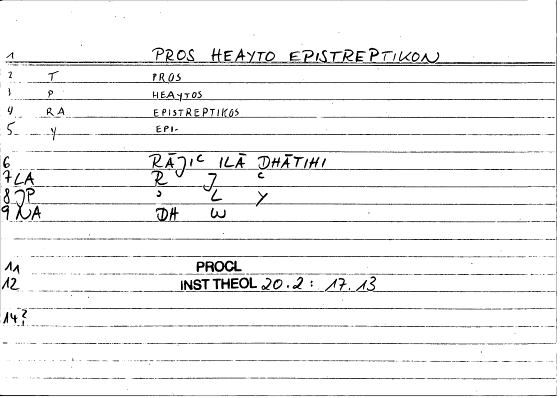 1 PROS HEAYTO EPISTREPTIKON
2 T PROS
3 P HEAYTOS
4 RA EPISTREPTIKOS
5 Y EPI-
6 RĀJIC ILĀ DHĀTIHI
7 LA R J C
8 JP ɔ L Y
9 NA DH W
11 PROCL
12 INST THEOL 20.2: 17.13
14?